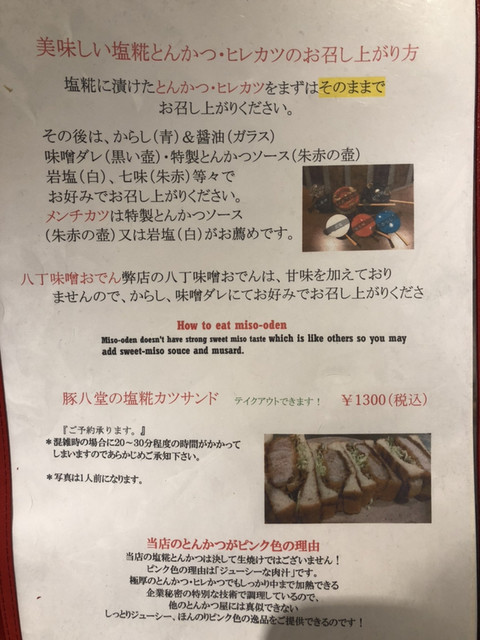 美味しい塩糀とんかつ・ヒレカツのお召し上がり方
塩糀に漬けたとんかつ・ヒレカツをまずはそのままで
お召し上がりください。
その後は、からし（青）＆醤油（ガラス）
味噌ダレ（黒い壺）・特製とんかつソース（朱赤の壺）
岩塩（白）、七味（朱赤）等々で
お好みでお召し上がりください。
メンチカツは特製とんかつソース
（朱赤の壺）又は岩塩（白）がお薦めです。
八丁味噌おでん弊店の八丁味噌おでんは、甘味を加えており
ませんので、からし、味噌ダレにてお好みでお召し上がりくださ
How to eat miso-oden
Miso-oden doesn't have strong sweet miso taste which is like others so you may
add sweet-miso souce and musard.
豚八堂の塩糀カツサンド テイクアウトできます！ ￥1300（税込）
『ご予約承ります。』
＊混雑時の場合に20～30分程度の時間がかかって
しまいますのであらかじめご承知下さい。
＊写真は1人前になります。
当店のとんかつがピンク色の理由
当店の塩糀とんかつは決して生焼けではございません！
ピンク色の理由は「ジューシーな肉汁」です。
極厚のとんかつ・ヒレかつでもしっかり中まで加熱できる
企業秘密の特別な技術で調理しているので、
他のとんかつ屋には真似できない
しっとりジューシー、ほんのりピンク色の逸品をご提供できるのです！